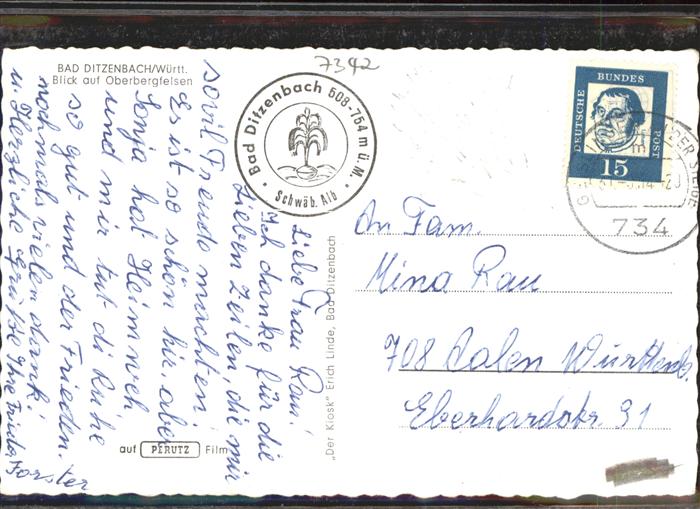 7342
BAD DITZENBACH/Württ.
Blick auf Oberbergfelsen
Bad Ditzenbach 508-754 m ü. M.
Schwäb. Alb
DEUTSCHE
BUNDES
POST
15
734
Liebe Frau Rau!
Ich danke für die
lieben Zeilen, die mir
sovil Freude machten
Es ist so schön hir, aber
Sonja hat Heimweh
und mir tut di Ruhe
so gut und der Frieden.
nochmals vielen dank
u. Herzliche Grüße Ihre Frida
Forster
An Fam.
Mina Rau
708 Aalen Württemb.
Eberhardstr. 31
"Der Kiosk" Erich Linde, Bad Ditzenbach
auf PERUTZ Film